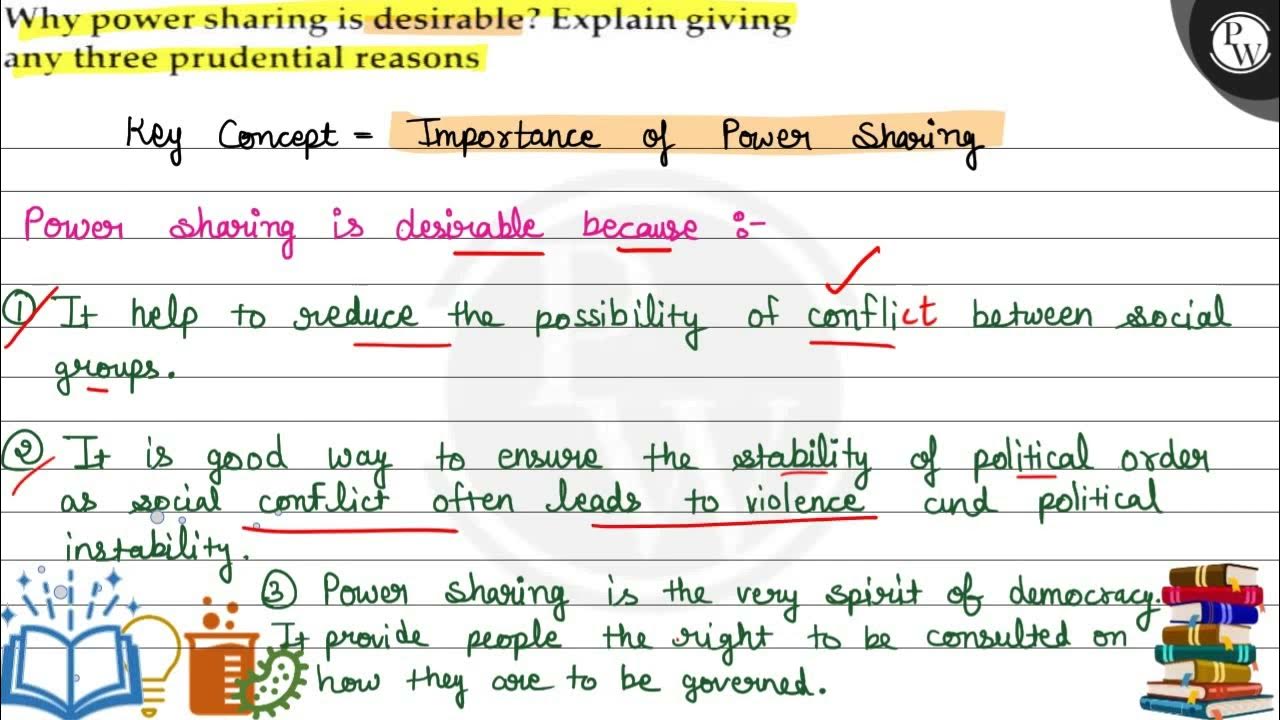 Why power sharing is desirable? Explain giving
any three prudential reasons
PW
Key Concept = Importance of Power Sharing
Power sharing is desirable because :-
① It help to reduce the possibility of conflict between social
groups.
② It is good way to ensure the stability of political order
as social conflict often leads to violence and political
instability.
③ Power sharing is the very spirit of democracy.
It provide people the right to be consulted on
how they are to be governed.